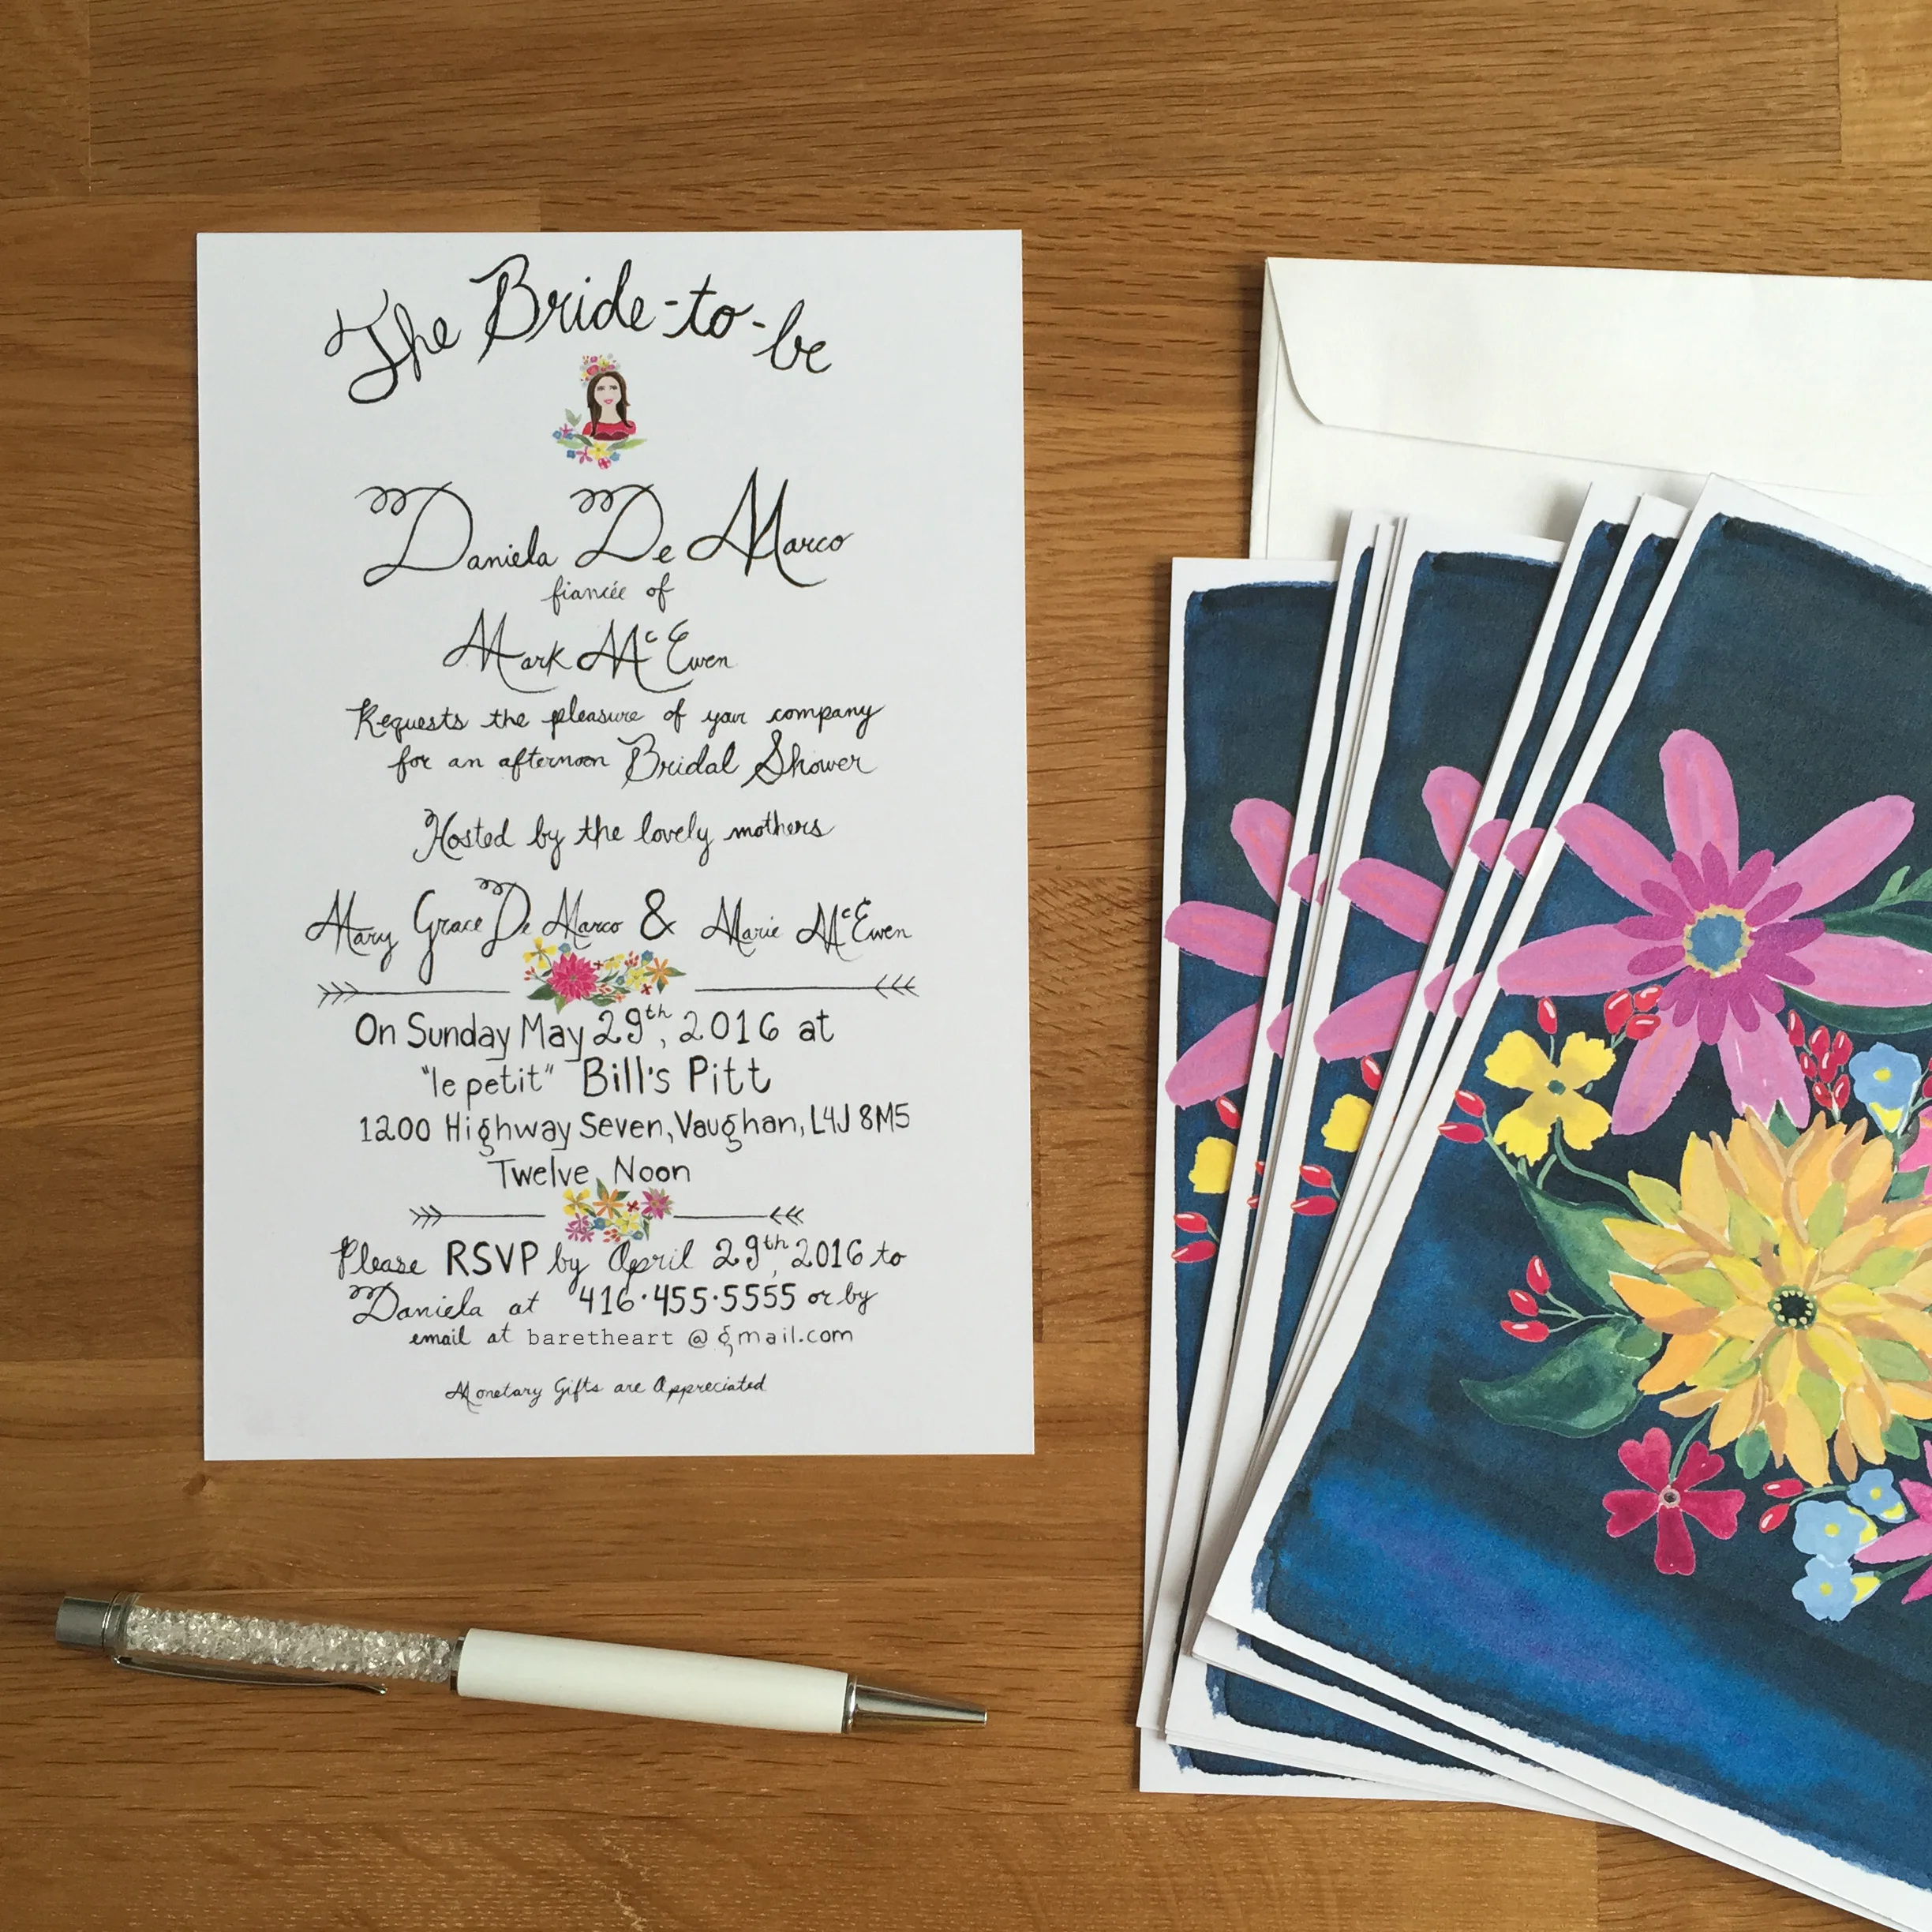 The Bride-to-be
Daniela De Marco
fiancée of
Mark McEwen
Requests the pleasure of your company
for an afternoon Bridal Shower
Hosted by the lovely mothers
Mary Grace De Marco & Marie McEwen
On Sunday May 29th, 2016 at
"le petit" Bill's Pitt
1200 Highway Seven, Vaughan, L4J 8M5
Twelve Noon
Please RSVP by April 29th, 2016 to
Daniela at 416·455·5555 or by
email at baretheart @ gmail.com
Monetary Gifts are Appreciated